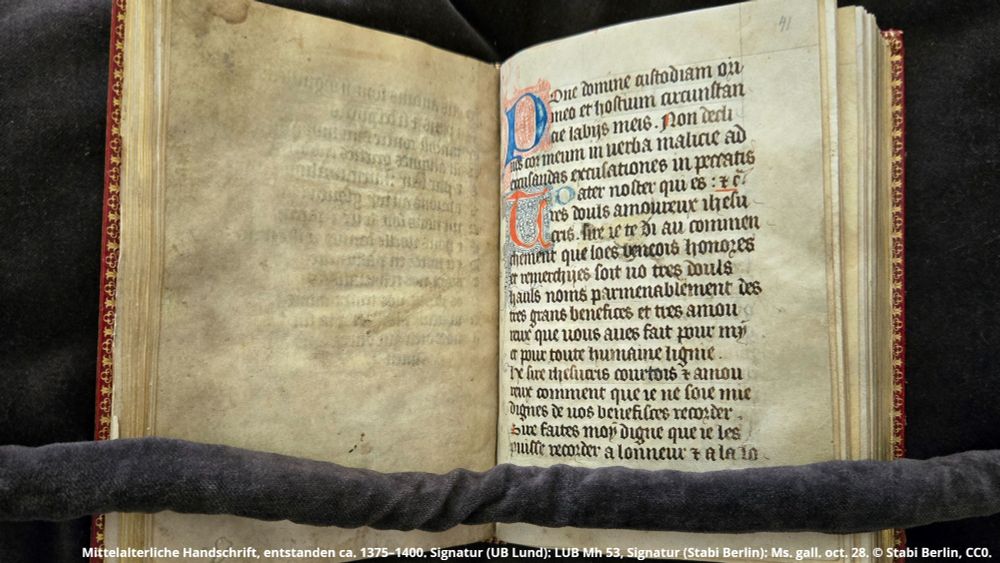 41
Pone domine custodiam ori
meo et hostium circumstan
cie labijs meis. Non decli
nes cor meum in uerba malicie ad
excusandas excusationes in peccatis
Pater noster qui es : ⁊ c̄
Tres douls amoureux ihesu
cris. sire ie te di au commen
chement que loes beneois honores
et remerchijes soit uo tres douls
hauls noms parmenablement des
tres grans benefices et tres amou
reux que uous aues fait pour mÿ
et pour toute humaine lignie.
He sire ihesucris courtois ⁊ amou
reux comment que ie ne soie mie
dignes de uos benefisces recorder.
Sire faites moÿ digne que ie les
puisse recorder a lonneur ⁊ a la lo
Mittelalterliche Handschrift, entstanden ca. 1375–1400. Signatur (UB Lund): LUB Mh 53, Signatur (Stabi Berlin): Ms. gall. oct. 28. © Stabi Berlin, CC0.